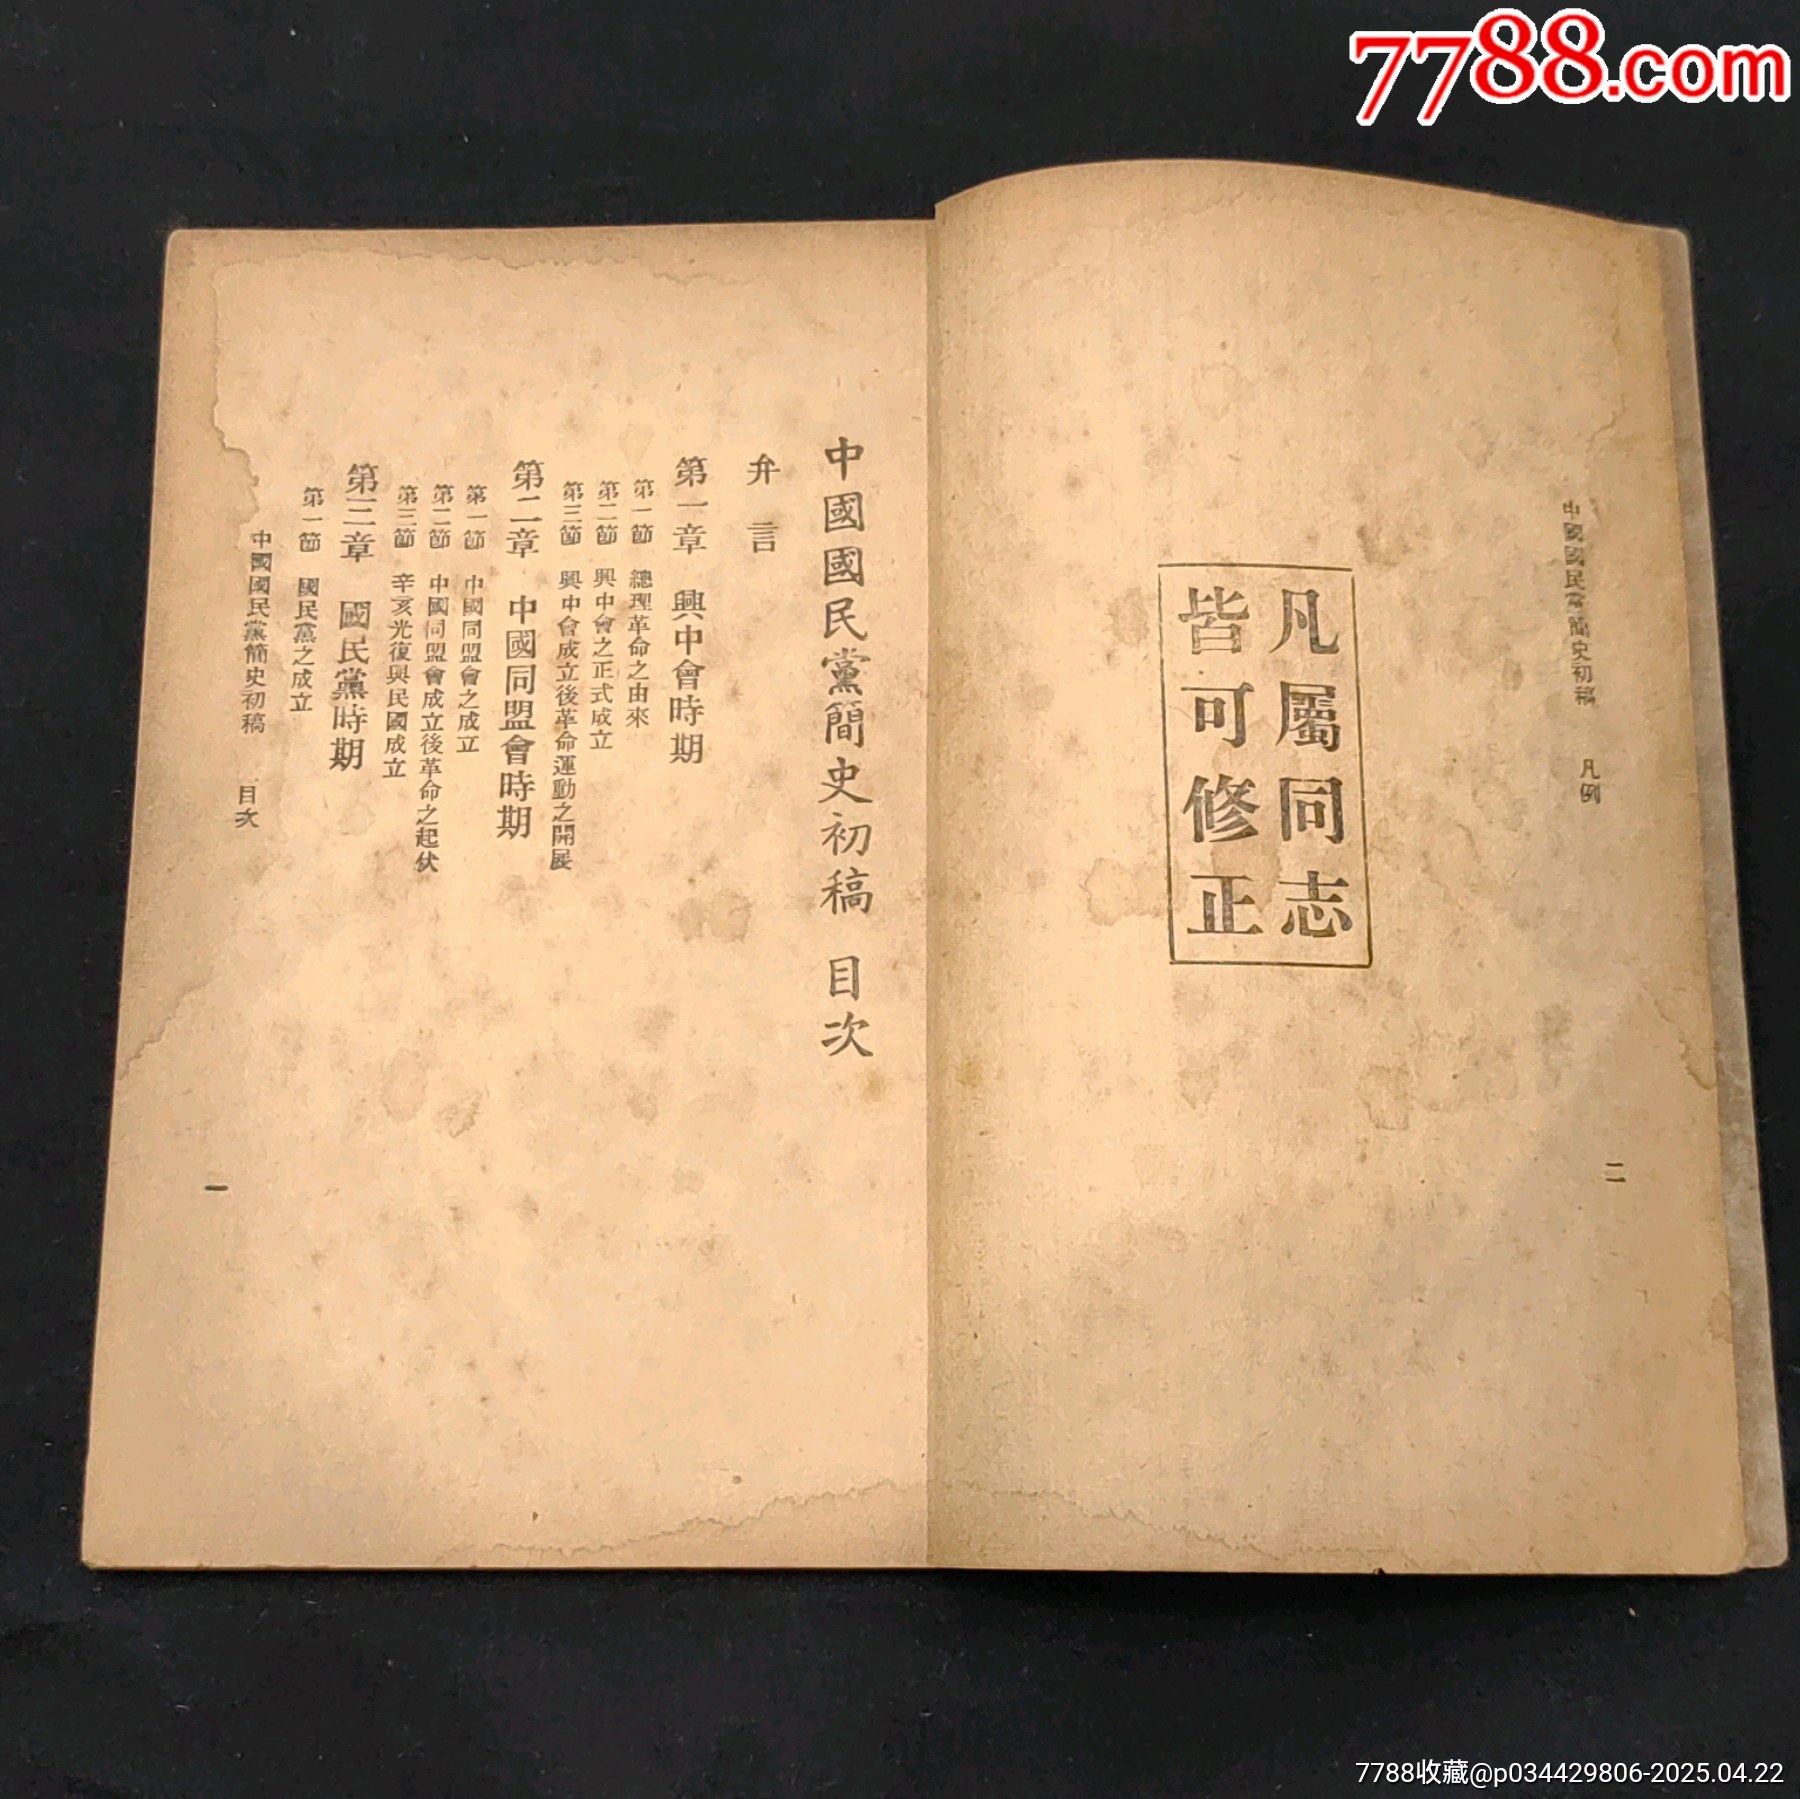 7788.com
中國國民黨簡史初稿 凡例
二
凡屬同志
皆可修正
中國國民黨簡史初稿 目次
弁言
第一章 興中會時期
第一節 總理革命之由來
第二節 興中會之正式成立
第三節 興中會成立後革命運動之開展
第二章 中國同盟會時期
第一節 中國同盟會之成立
第二節 中國同盟會成立後革命之起伏
第三節 辛亥光復與民國成立
第三章 國民黨時期
第一節 國民黨之成立
中國國民黨簡史初稿 目次
一
7788收藏@p034429806-2025.04.22